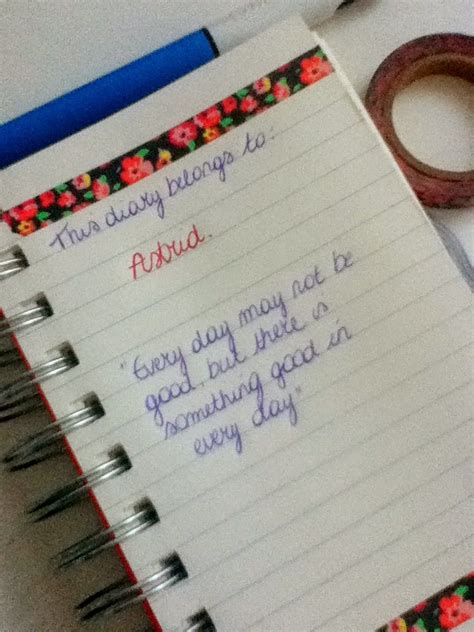 This diary belongs to:
Astrid.
"Every day may not be
good, but there is
something good in
every day"